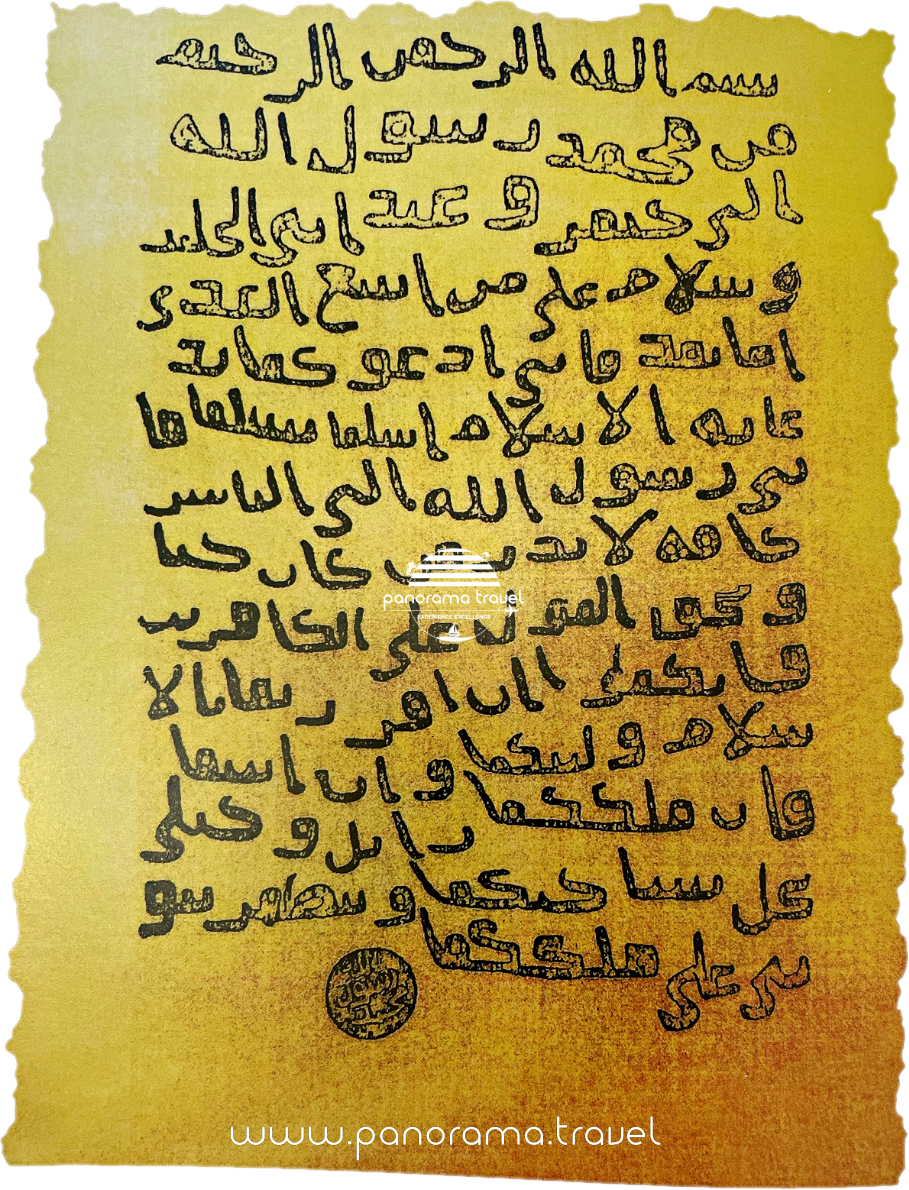 بسم الله الرحمن الرحيم
من محمد رسول الله
الى جيفر و عبد ابنى الجلند
و سلام على من اتبع الهدى
اما بعد فانى ادعو كما بد
عايه الاسلام اسلما تسلما فا
نى رسول الله الى الناس
كافه لاندر من كان حيا
و يحق القول على الكافرين
فا نكما ان اقر رتما بالا
سلام وليتكما و ان ابيتما
فان ملككما زايل و خيلى
تحل بساحتكما و تظهر نبو
تى على ملككما
الله
رسول
محمد
panorama travel
EXPERIENCE EXCELLENCE
www.panorama.travel